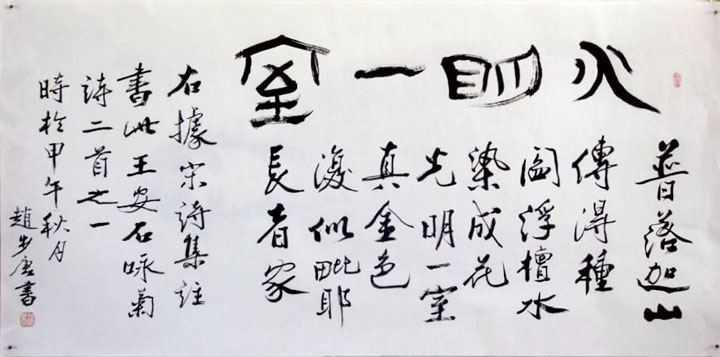 光明一室
普落迦山
傳得種
閻浮檀水
染成花
光明一室
真金色
復似毗耶
長者家
右據宋詩集註
書此王安石咏菊
詩二首之一
時於甲午秋月
趙步唐書